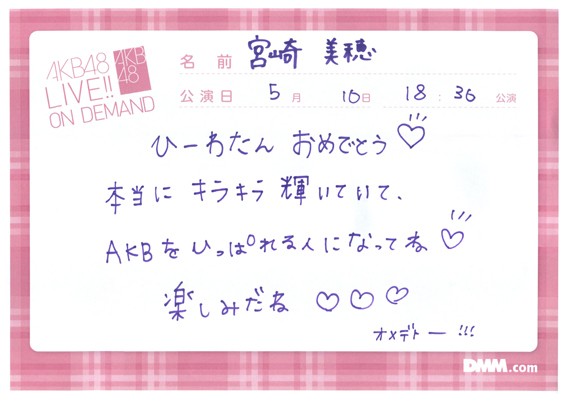 AKB48
LIVE!!
ON DEMAND
AKB
48
名前 宮崎 美穂
公演日 5月 10日 18:36 公演
ひーわたん おめでとう♡
本当に キラキラ 輝いていて、
AKBを ひっぱれる人になってね♡
楽しみだね ♡ ♡ ♡
オメデトー!!!
DMM.com